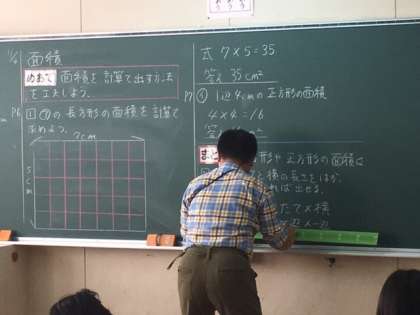 1/6 面積
めあて 面積を計算で出す方法
を工夫しよう。
P6 1 ㋐の長方形の面積を計算で
求めよう。
7cm
5cm
式 7×5=35
答え 35cm²
P7 1辺4cmの正方形の面積
4×4=16
答
まと 形や正方形の面積は
と横の長さをはか
れば出せる。
たて×横